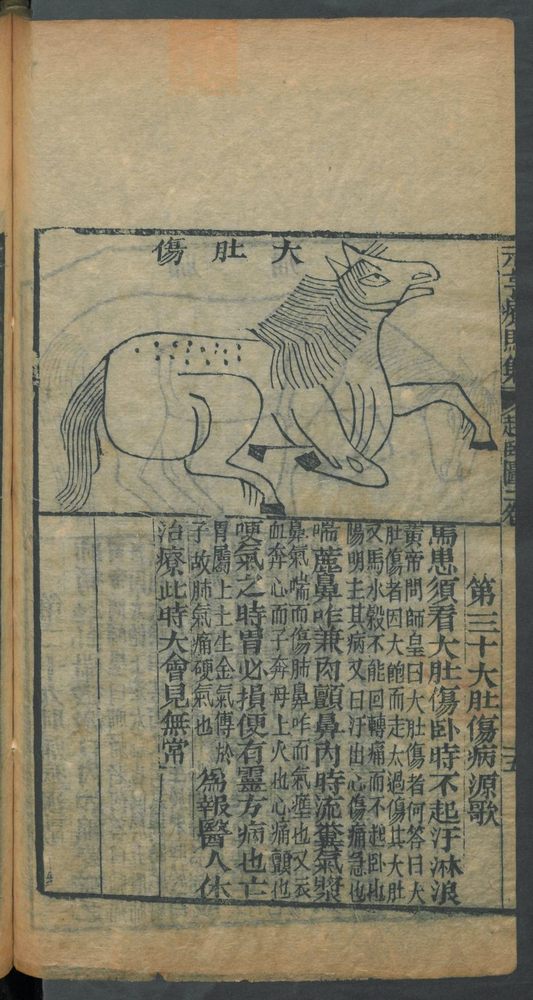 元亨療馬集
起臥圖
十五
大肚傷
第三十大肚傷病源歌
馬患須看大肚傷臥時不起汗淋浪
黃帝問師皇曰大肚傷者何答曰大
肚傷者因大飽而走太過傷其大肚
又馬水穀不能回轉痛而不起臥也
陽明主其病又曰汗出心傷痛急也
喘麄鼻咋兼肉顫鼻內時流糞氣漿
鼻氣喘而傷肺鼻咋而氣壅也又云
血奔心而子奔母上火也心痛顫也
哽氣之時胃必損便有靈方病也亡
胃屬土土生金氣傳於
子故肺氣痛硬氣也
為報醫人休
治療此時大會見無常